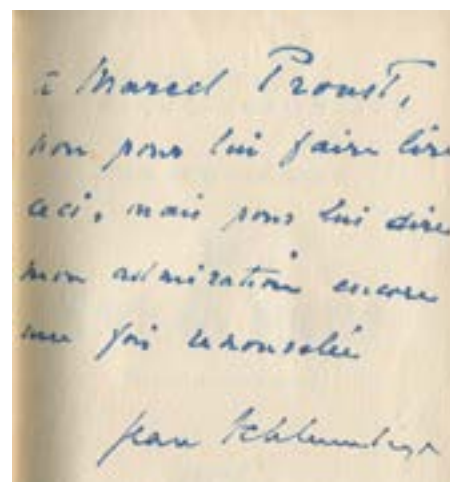 à Marcel Proust,
non pour lui faire lire
ceci, mais pour lui dire
mon admiration encore
une fois renouvelée
Jean Schlumberger